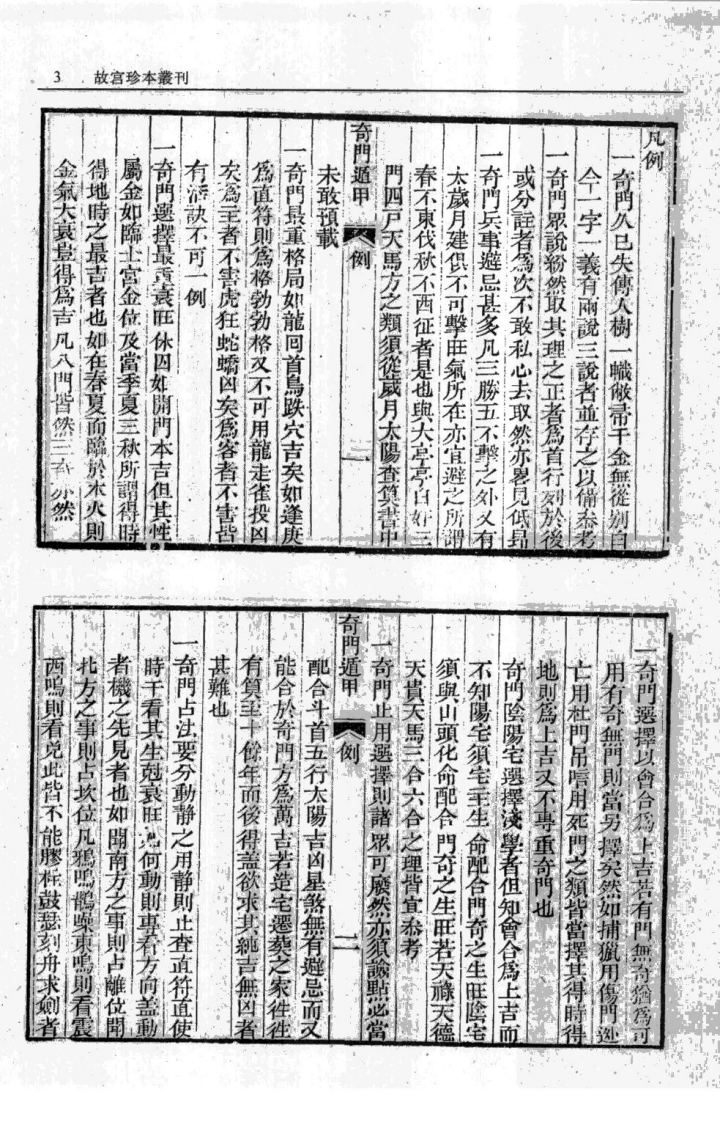 3 故宮珍本叢刊
凡例
一奇門久已失傳人樹一幟敝帚千金無從別白
今一字一義有兩說三說者並存之以備叅考
一奇門眾說紛然取其理之正者爲首行刻於後
或分註者爲次不敢私心去取然亦畧見低昂
一奇門兵事避忌甚多凡三勝五不擊之外又有
太歲月建俱不可擊旺氣所在亦宜避之所謂
春不東伐秋不西征者是也與大亭亭白奸三
門四戸天馬方之類須從歲月太陽查算書中
奇門遁甲 例 一
未敢預載
一奇門最重格局如龍囘首鳥跌穴吉矣如逢庚
爲直符則爲格勃勃格又不可用龍走雀投凶
矣爲主者不害虎狂蛇蟜凶矣爲客者不害皆
有活訣不可一例
一奇門選擇最重衰旺休囚如開門本吉但其性
屬金如臨土宮金位及當季夏三秋所謂得時
得地時之最吉者也如在春夏而臨於木火則
金氣大衰豈得爲吉凡八門皆然三奇亦然
一奇門選擇以會合爲上吉若有門無奇猶爲可
用有奇無門則當另擇矣然如捕獵用傷門逃
亡用杜門吊喑用死門之類皆當擇其得時得
地則爲上吉又不專重奇門也
奇門陰陽宅選擇淺學者但知會合爲上吉而
不知陽宅須宅主生命配合門奇之生旺陰宅
須與山頭化命配合門奇之生旺若天祿天德
天貴天馬三合六合之理皆宜叅考
一奇門止用選擇則諸眾可廢然亦須識點必當
奇門遁甲 例 二
配合斗首五行太陽吉凶星煞無有避忌而又
能合於奇門方爲萬吉若造宅遷塟之家徃徃
有算至十餘年而後得盖欲求其純吉無凶者
甚難也
一奇門占法要分動靜之用靜則止查直符直使
時干看其生尅衰旺如何動則專看方向盖動
者機之先見者也如聞南方之事則占離位聞
北方之事則占坎位凡鴉鳴鵲噪東鳴則看震
西鳴則看兌此皆不能膠柱鼓瑟刻舟求劍者